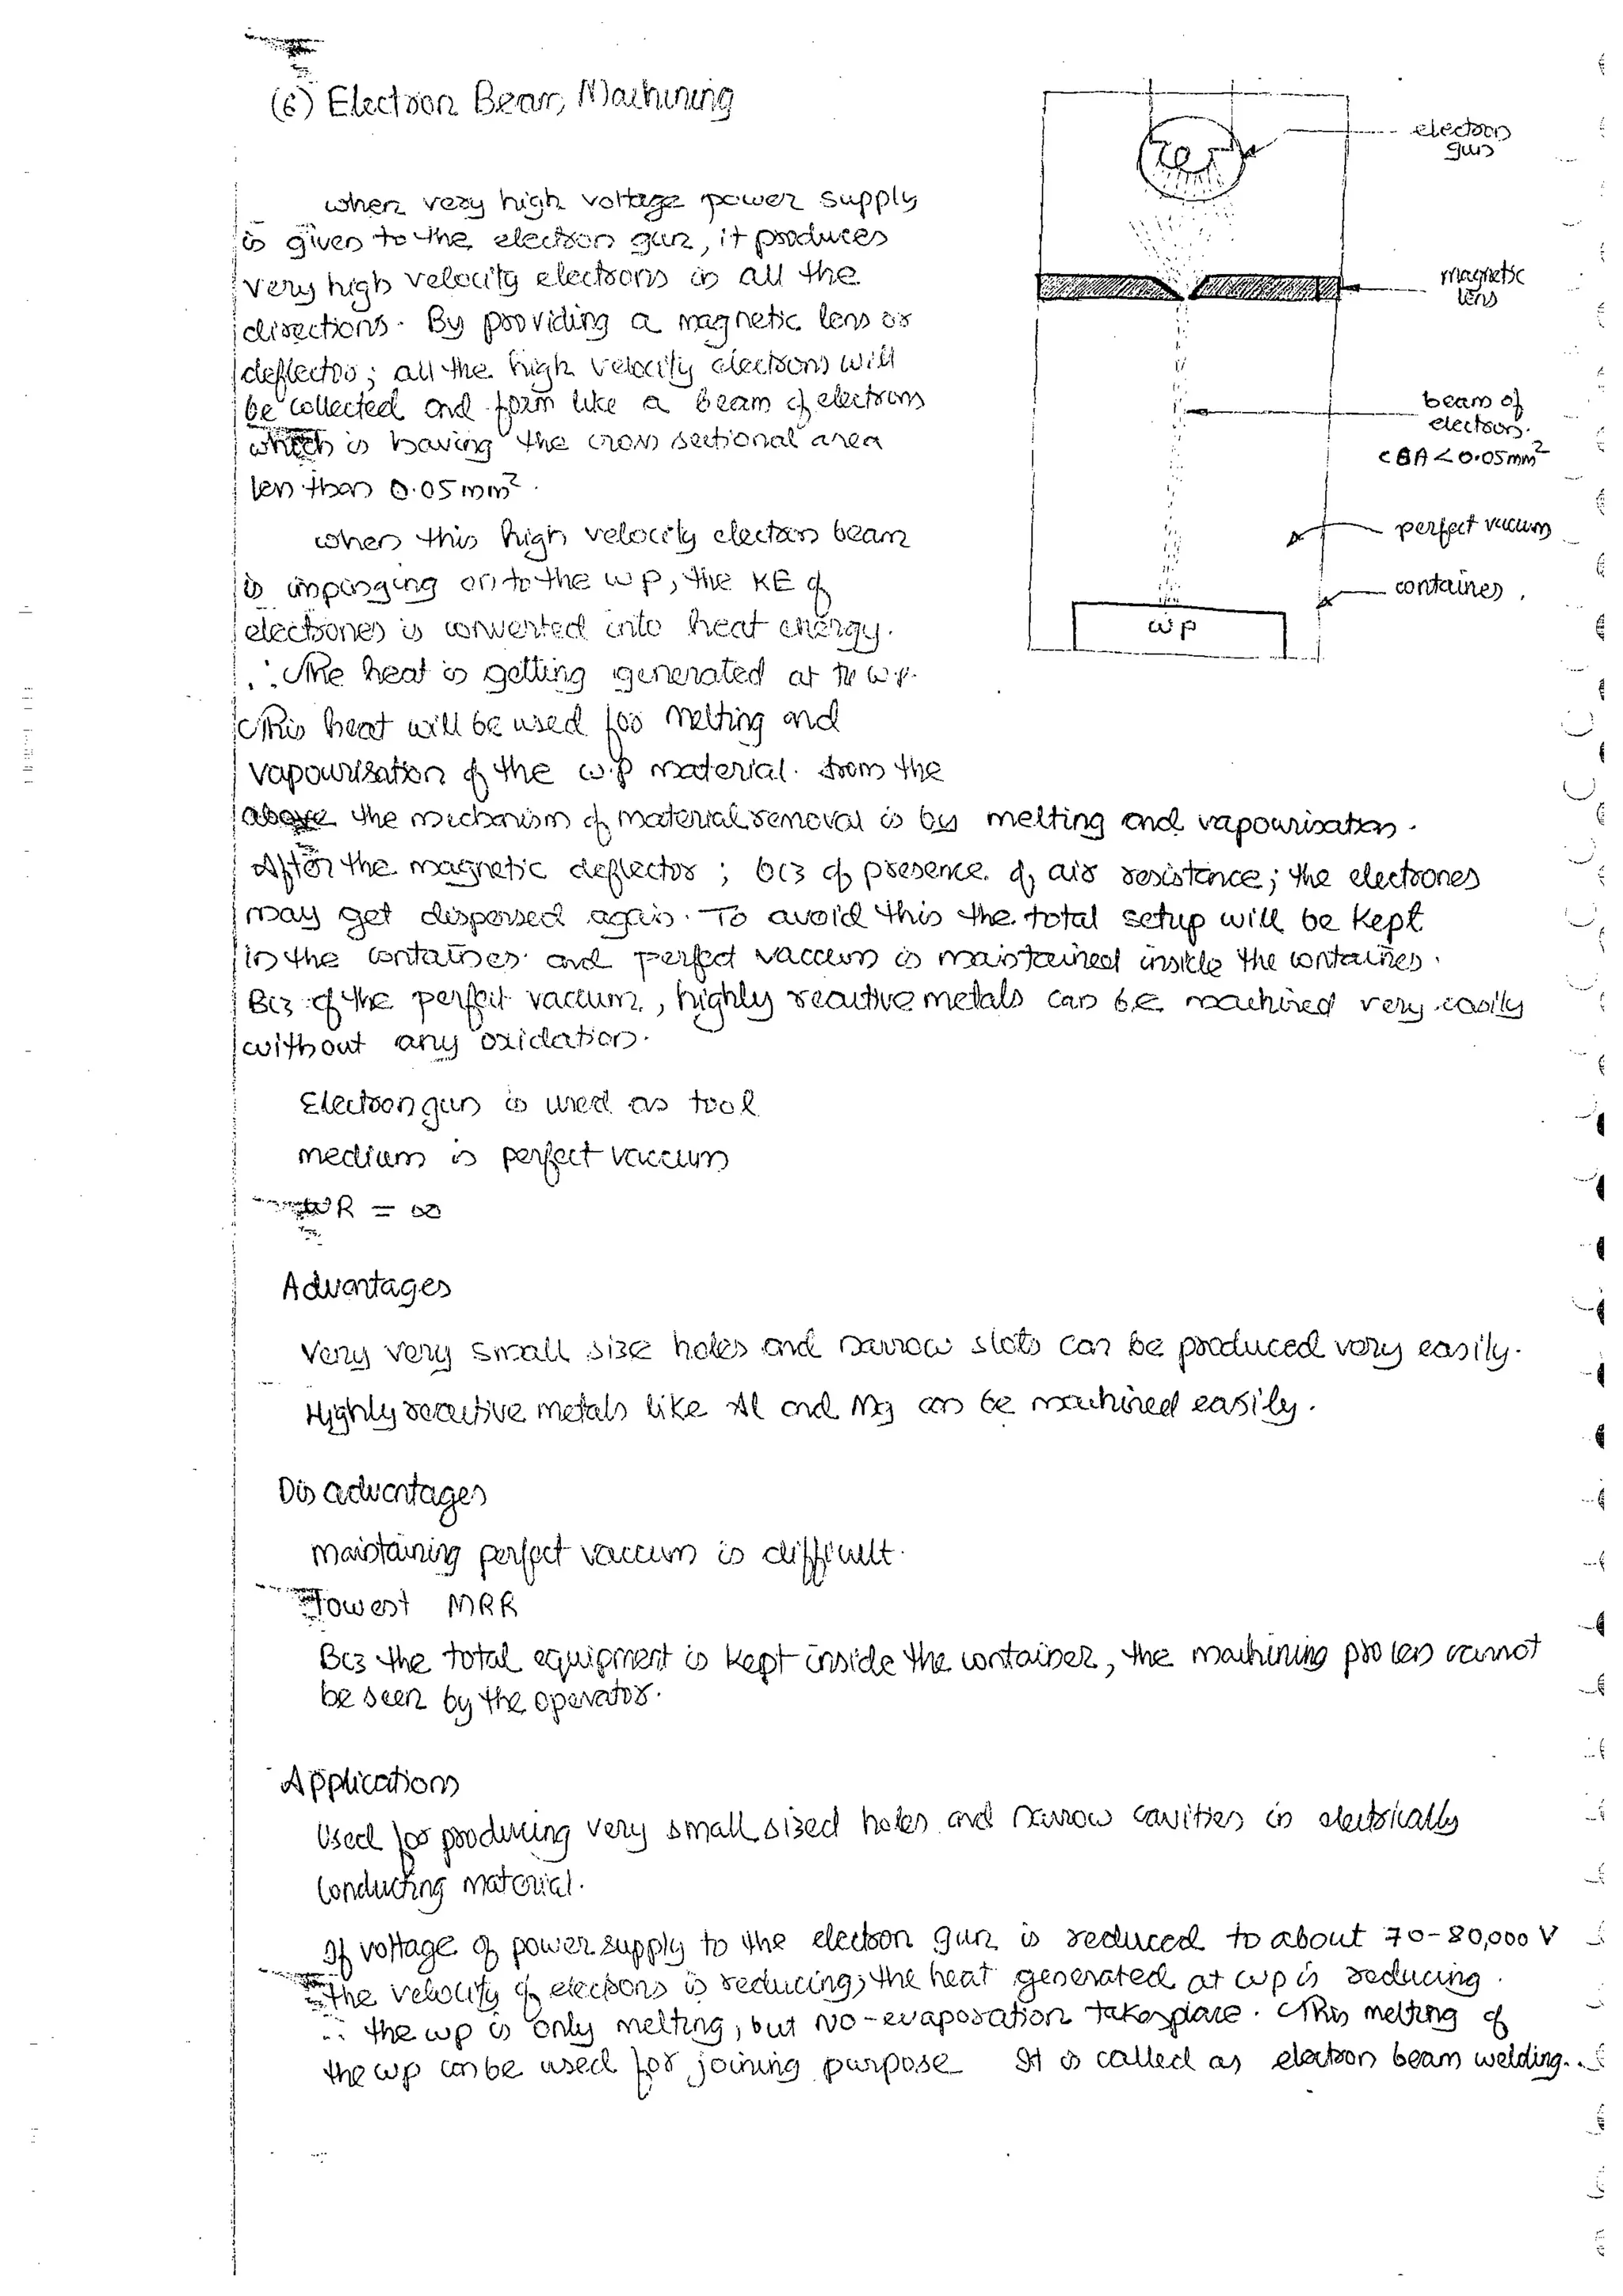 (6) Electron Beam Machining
when very high voltage power supply
is given to the electron gun, it produces
very high velocity electrons in all the
directions. By providing a magnetic lens or
deflector; all the high velocity electrons will
be collected and form like a beam of electrons
which is having the cross sectional area
less than 0.05 mm²
when this high velocity electron beam
is impinging on to the wp, the KE of
electrones is converted into heat energy.
∴ The heat is getting generated at the w.p.
This heat will be used for melting and
vapourisation of the w.p material. from the
above the mechanism of material removal is by melting and vapourisation.
After the magnetic deflector; bcz of presence of air resistance; the electrones
may get dispersed again. To avoid this the total setup will be kept
in the container and perfect vaccum is maintained inside the container.
Bcz of the perfect vaccum, highly reactive metals can be machined very easily
without any oxidation.
Electron gun is used as tool
medium is perfect vaccum
WR = ∞
Advantages
Very very small size holes and narrow slots can be produced very easily.
Highly reactive metals like Al and Mg can be machined easily.
Disadvantages
maintaining perfect vaccum is difficult.
Lowest MRR
Bcz the total equipment is kept inside the container, the machining process cannot
be seen by the operator.
Applications
Used for producing very small sized holes and narrow cavities in electrically
conducting material.
If voltage of power supply to the electron gun is reduced to about 70-80,000 V
The velocity of electrons is reducing, the heat generated at wp is reducing.
∴ the wp is only melting, but NO-evaporation takesplace. This melting of
the wp can be used for joining purpose It is called as electron beam welding.
electron
gun
magnetic
lens
beam of
electrons.
CSA < 0.05mm²
perfect vacuum
container,
wp